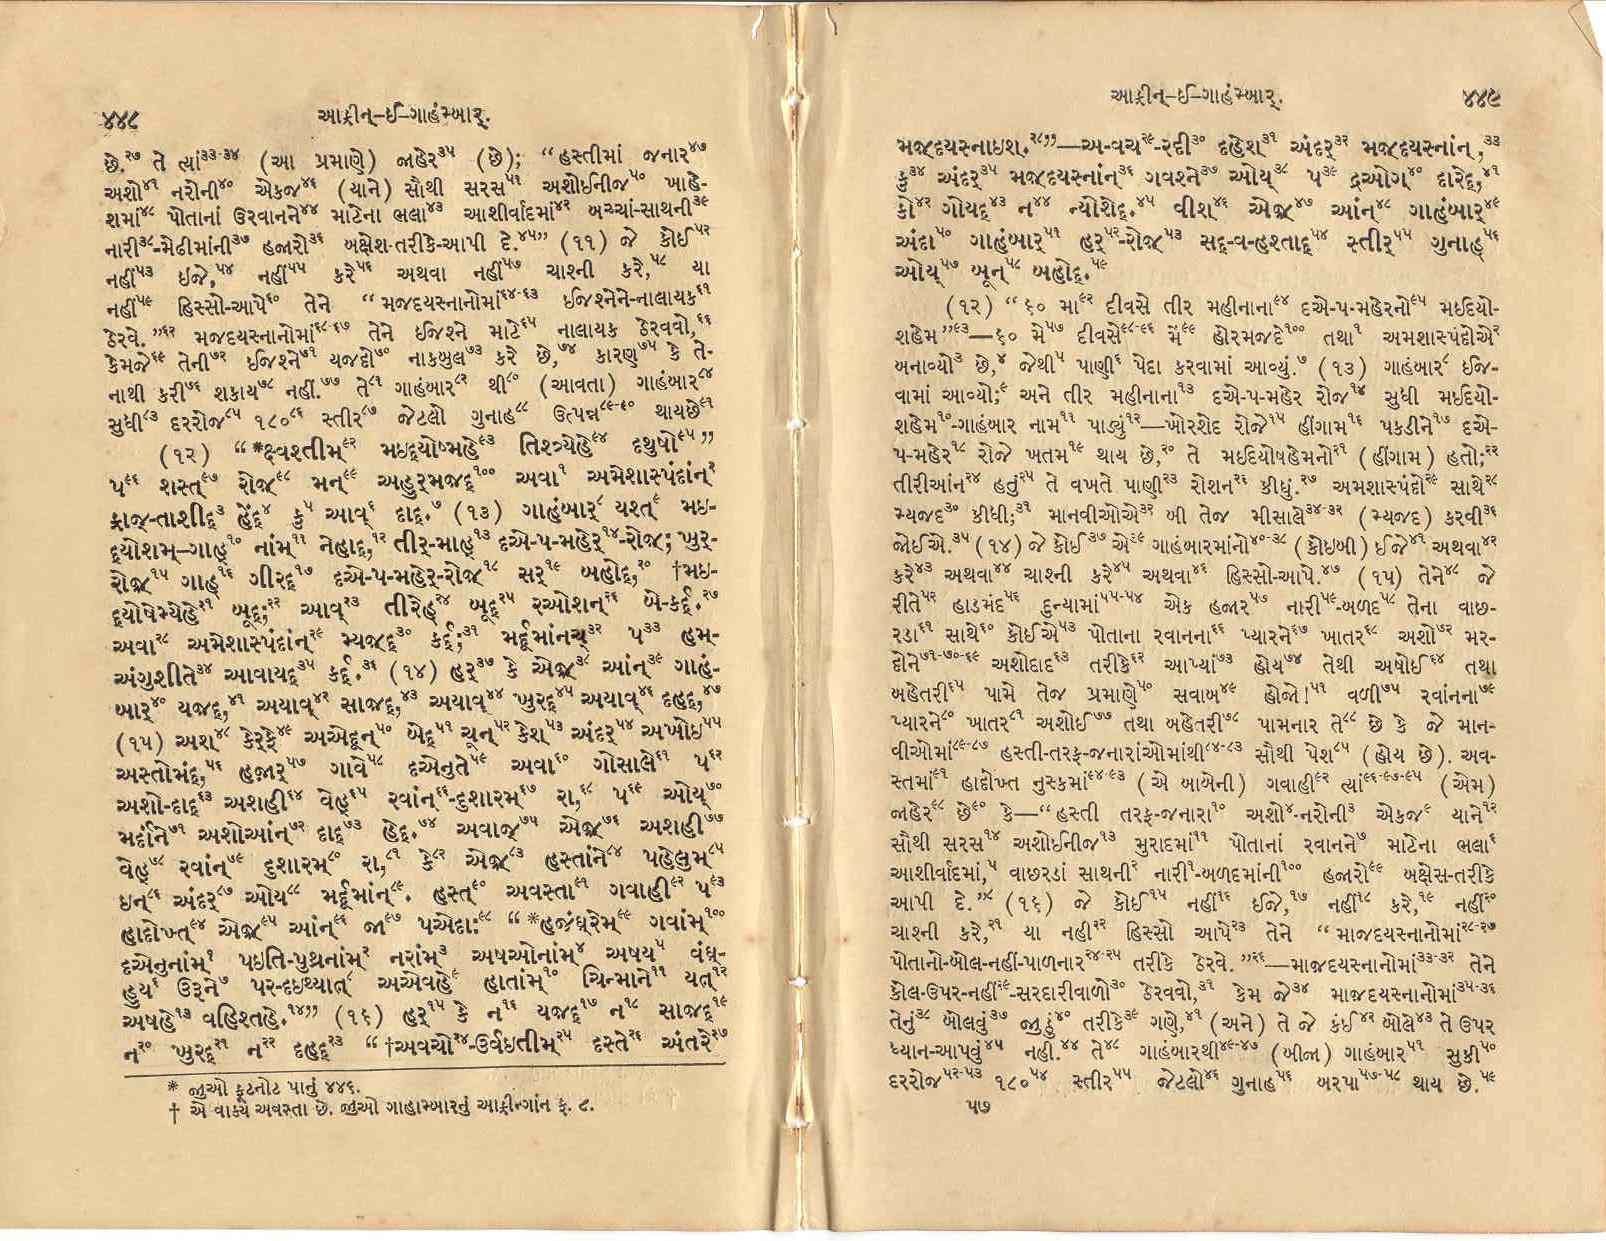 ૪૪૮
આફ્રીન્-ઈ-ગાહંમ્બાર્.
છે.૨૭ તે ત્યાં૩૩-૩૪ (આ પ્રમાણે) જાહેર૩૫ (છે); “હસ્તીમાં જનાર૪૭
અશો૪૧ નરોની૪૦ એકજ૪૬ (યાને) સૌથી સરસ૫૧ અશોઈનીજ૫૦ ખાહે-
શમાં૪૮ પોતાનાં ઉરવાનને૪૪ માટેના ભલા૪૩ આશીર્વાદમાં૪૨ બચ્ચાં-સાથની૩૯
નારી૩૮-મેઢીમાંની૩૭ હજારો૩૬ બક્ષેશ-તરીકે-આપી દે.૪૫” (૧૧) જે કોઈ૫૨
નહીં૫૩ ઇજે,૫૪ નહીં૫૫ કરે૫૬ અથવા નહીં૫૭ ચાશ્ની કરે,૫૮ યા
નહીં૫૯ હિસ્સો-આપે૬૦ તેને “મજદયસ્નાનોમાં૬૪-૬૩ ઈજશ્નેને-નાલાયક૬૧
ઠેરવે.”૬૨ મજદયસ્નાનોમાં૬૮-૬૭ તેને ઈજશ્ને માટે૬૫ નાલાયક ઠેરવવો,૬૬
કેમજે૬૯ તેની૭૨ ઇજશ્ને૭૧ યજદો૭૦ નાકબુલ૭૩ કરે છે,૭૪ કારણ૭૫ કે તે-
નાથી કરી૭૬ શકાય૭૮ નહીં.૭૭ તે૮૧ ગાહંબાર૮૨ થી૮૦ (આવતા) ગાહંબાર૮૪
સુધી૮૩ દરરોજ૮૫ ૧૮૦૮૬ સ્તીર૮૭ જેટલો ગુનાહ૮૮ ઉત્પન્ન૮૯-૯૦ થાયછે૯૧
(૧૨) “*ક્ષ્વશ્તીમ્૯૨ મઇદ્યોષ્મહે૯૩ તિશ્ત્ર્યેહે૯૪ દથુષો૯૫”
પ૯૬ શસ્ત્૯૭ રોજ્૯૮ મન્૯૯ અહુર્મજદ્૧૦૦ અવા૧ અમેશાસ્પંદાંન્૨
ફ્રાજ્-તાશીદ્૩ હેંદ્૪ કુ૫ આવ્૬ દાદ્.૭ (૧૩) ગાહંબાર્૮ યશ્ત્૯ મઇ-
દ્યોશમ્-ગાહ્૧૦ નાંમ્૧૧ નેહાદ્,૧૨ તીર્-માહ્૧૩ દએ-પ-મહેર્૧૪-રોજ; ખુર્-
રોજ્૧૫ ગાહ્૧૬ ગીરદ્૧૭ દએ-પ-મહેર્-રોજ્૧૮ સર્૧૯ બહોદ્,૨૦ †મઇ-
દ્યોષેમ્યેહે૨૧ બૂદ્;૨૨ આવ્૨૩ તીરેહ્૨૪ બૂદ્૨૫ રઓશન્૨૬ બે-કર્દ્.૨૭
અવા૨૮ અમેશાસ્પંદાંન્૨૯ મ્યજ્દ્૩૦ કર્દ્;૩૧ મર્દૂમાંનચ્૩૨ પ૩૩ હમ્-
અંગુશીતે૩૪ આવાયદ્૩૫ કર્દ્.૩૬ (૧૪) હર્૩૭ કે એજ્૩૮ આંન્૩૯ ગાહં-
બાર્૪૦ યજદ્,૪૧ અયાવ્૪૨ સાજદ્,૪૩ અયાવ્૪૪ ખુરદ્૪૫ અયાવ્૪૬ દહદ્,૪૭
(૧૫) અશ્૪૮ કેર્ફે૪૯ અએદૂન્૫૦ બેદ્૫૧ ચૂન્૫૨ કેશ્૫૩ અંદર્૫૪ અખોઇ૫૫
અસ્તોમંદ્,૫૬ હજાર્૫૭ ગાવે૫૮ દએનુતે૫૯ અવા૬૦ ગોસાલે૬૧ પ૬૨
અશો-દાદ્૬૩ અશહી૬૪ વેહ્૬૫ રવાંન્૬૬-દુશારમ્૬૭ રા,૬૮ પ૬૯ ઓય્૭૦
મર્દાને૭૧ અશોઆંન્૭૨ દાદ્૭૩ હેદ્.૭૪ અવાજ્૭૫ એજ્૭૬ અશહી૭૭
વેહ્૭૮ રવાંન્૭૯ દુશારમ્૮૦ રા,૮૧ કે૮૨ એજ્૮૩ હસ્તાંને૮૪ પહેલુમ્૮૫
ઇન્૮૬ અંદર્૮૭ ઓય૮૮ મર્દૂમાંન્૮૯. હસ્ત્૯૦ અવસ્તા૯૧ ગવાહી૯૨ પ૯૩
હાદોખ્ત્૯૪ એજ્૯૫ આંન્૯૬ જા૯૭ પએદા:૯૮ “*હજંઘ્રેમ્૯૯ ગવાંમ્૧૦૦
દએનુનાંમ્૧ પઇતિ-પુથ્રનાંમ્૨ નરાંમ્૩ અષઓનાંમ્૪ અષય૫ વંઘ-
હુય૬ ઉરૂને૭ પર-દઇથ્યાત્૮ અએવહે૯ હાતાંમ્૧૦ ચિન્માને૧૧ યત્૧૨
અષહે૧૩ વહિશ્તહે.૧૪” (૧૬) હર્૧૫ કે ન૧૬ યજદ્૧૭ ન૧૮ સાજદ્૧૯
ન૨૦ ખુરદ્૨૧ ન૨૨ દહદ્૨૩ “†અવચો૨૪-ઉર્વઇતીમ્૨૫ દસ્તે૨૬ અંતરે૨૭
* જુઓ ફૂટનોટ પાનું ૪૪૬.
† એ વાક્ય અવસ્તા છે. જુઓ ગાહામ્બારનું આફ્રીન્ગાંન ફ. ૮.
આફ્રીન્-ઈ-ગાહંમ્બાર્.
૪૪૯
મજ્દયસ્નાઇશ.૨૮”—અ-વચ૨૯-રદી૩૦ દહેશ્૩૧ અંદર્૩૨ મજ્દયસ્નાંન્,૩૩
કુ૩૪ અંદર્૩૫ મજ્દયસ્નાંન્૩૬ ગવશ્ને૩૭ ઓય્૩૮ પ૩૯ દ્રઓગ્૪૦ દારેદ્,૪૧
કો૪૨ ગોયદ્૪૩ ન૪૪ ન્યોશેદ્.૪૫ વીશ્૪૬ એજ્૪૭ આંન્૪૮ ગાહંબાર્૪૯
અંદા૫૦ ગાહંબાર્૫૧ હર્૫૨-રોજ્૫૩ સદ્-વ-હશ્તાદ્૫૪ સ્તીર્૫૫ ગુનાહ્૫૬
ઓય્૫૭ બૂન્૫૮ બહોદ્.૫૯
(૧૨) “૬૦ મા૯૨ દીવસે તીર મહીનાના૯૪ દએ-પ-મહેરનો૯૫ મઇદિયો-
શહેમ”૯૩—૬૦ મે૫૭ દીવસે૯૮-૯૬ મેં૯૯ હોરમજદે૧૦૦ તથા૧ અમશાસ્પંદોએ૨
બનાવ્યો૩ છે,૪ જેથી૫ પાણી૬ પેદા કરવામાં આવ્યું.૭ (૧૩) ગાહંબાર૮ ઈજ-
વામાં આવ્યો;૯ અને તીર મહીનાના૧૩ દએ-પ-મહેર રોજ૧૪ સુધી મઇદિયો-
શહેમ૧૦-ગાહંબાર નામ૧૧ પાડ્યું૧૨—ખોરશેદ રોજે૧૫ હીંગામ૧૬ પકડીને૧૭ દએ-
પ-મહેર૧૮ રોજે ખતમ૧૯ થાય છે,૨૦ તે મઇદિયોષહેમનો૨૧ (હીંગામ) હતો;૨૨
તીરીઆંન૨૪ હતું૨૫ તે વખતે પાણી૨૩ રોશન૨૬ કીધું.૨૭ અમશાસ્પંદો૨૯ સાથે૨૮
મ્યજદ૩૦ કીધી;૩૧ માનવીઓએ૩૨ બી તેજ મીસાલે૩૪-૩૨ (મ્યજદ) કરવી૩૬
જોઈએ.૩૫ (૧૪) જે કોઈ૩૭ એ૩૯ ગાહંબારમાંનો૪૦-૩૮ (કોઇબી) ઈજે૪૧ અથવા૪૨
કરે૪૩ અથવા૪૪ ચાશ્ની કરે૪૫ અથવા૪૬ હિસ્સો-આપે.૪૭ (૧૫) તેને૪૮ જે
રીતે૫૨ હાડમંદ૫૬ દુન્યામાં૫૫-૫૪ એક હજાર૫૭ નારી૫૯-બળદ૫૮ તેના વાછ-
રડા૬૧ સાથે૬૦ કોઈએ૫૩ પોતાના રવાનના૬૬ પ્યારને૬૭ ખાતર૬૮ અશો૭૨ મર-
દોને૭૧-૭૦-૬૯ અશોદાદ૬૩ તરીકે૬૨ આપ્યાં૭૩ હોય૭૪ તેથી અષોઈ૬૪ તથા
બહેતરી૬૫ પામે તેજ પ્રમાણે૫૦ સવાબ૪૯ હોજો!૫૧ વળી૭૫ રવાંનના૭૯
પ્યારને૮૦ ખાતર૮૧ અશોઈ૭૭ તથા બહેતરી૭૮ પામનાર તે૮૮ છે કે જે માન-
વીઓમાં૮૯-૮૭ હસ્તી-તરફ-જનારાંઓમાંથી૮૪-૮૩ સૌથી પેશ૮૫ (હોય છે). અવ-
સ્તમાં૯૧ હાદોખ્ત નુસ્કમાં૯૪-૯૩ (એ બાબેની) ગવાહી૯૨ ત્યાં૯૬-૯૭-૯૫ (એમ)
જાહેર૯૮ છે૯૦ કે—“હસ્તી તરફ-જનારા૧૦ અશો૪-નરોની૩ એકજ૯ યાને૧૨
સૌથી સરસ૧૪ અશોઈનીજ૧૩ મુરાદમાં૧૧ પોતાનાં રવાનને૭ માટેના ભલા૬
આશીર્વાદમાં,૫ વાછરડાં સાથની૨ નારી૧-બળદમાંની૧૦૦ હજારો૯૯ બક્ષેસ-તરીકે
આપી દે.”૮ (૧૬) જે કોઈ૧૫ નહીં૧૬ ઈજે,૧૭ નહીં૧૮ કરે,૧૯ નહીં૨૦
ચાશ્ની કરે,૨૧ યા નહી૨૨ હિસ્સો આપે૨૩ તેને “માજદયસ્નાનોમાં૨૮-૨૭
પોતાનો-બોલ-નહીં-પાળનાર૨૪-૨૫ તરીકે ઠેરવે.”૨૬—માજદયસ્નાનોમાં૩૩-૩૨ તેને
કૌલ-ઉપર-નહીં૨૯-સરદારીવાળો૩૦ ઠેરવવો,૩૧ કેમ જે૩૪ માજદયસ્નાનોમાં૩૫-૩૬
તેનું૩૮ બોલવું૩૭ જુઠું૪૦ તરીકે૩૯ ગણે,૪૧ (અને) તે જે કંઈ૪૨ બોલે૪૩ તે ઉપર
ધ્યાન-આપવું૪૫ નહી.૪૪ તે૪૮ ગાહંબારથી૪૯-૪૭ (બીજા) ગાહંબાર૫૧ સુધી૫૦
દરરોજ૫૨-૫૩ ૧૮૦૫૪ સ્તીર૫૫ જેટલો૪૬ ગુનાહ૫૬ બરપા૫૭-૫૮ થાય છે.૫૯
૫૭